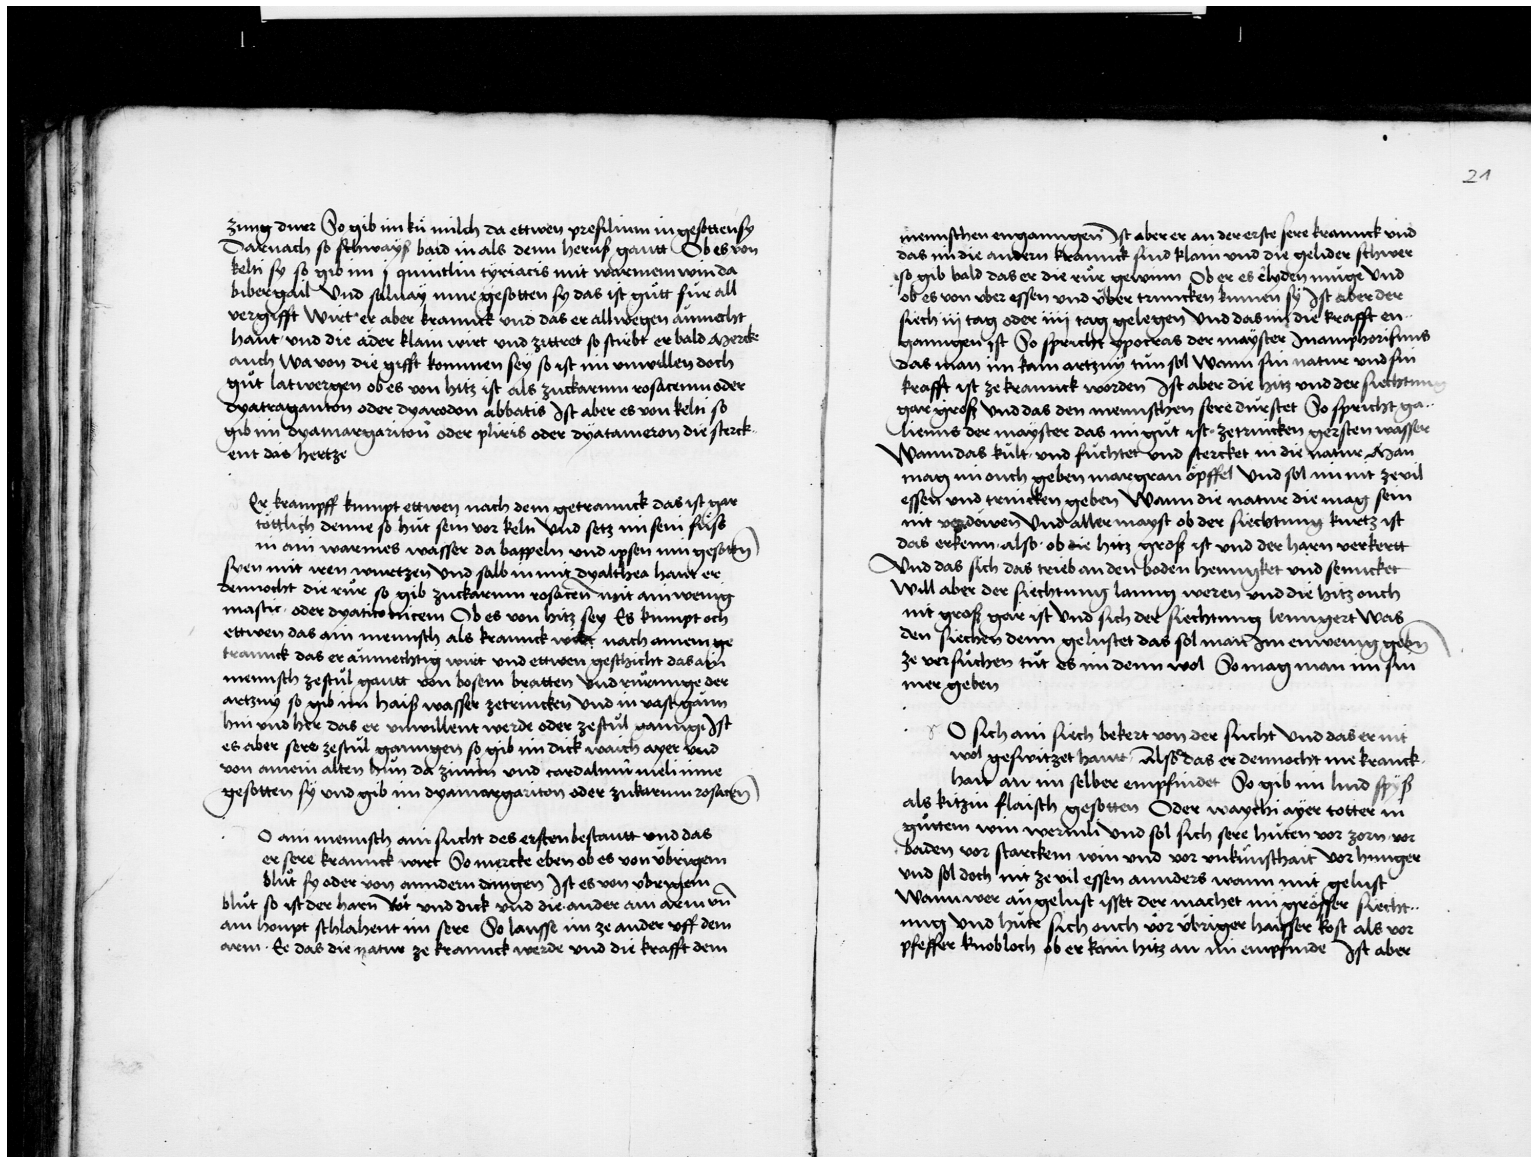 zung durr So gib im kü milch da ettwen presilium in gesotten sy
Darnach so schwayß bald in als denn heruß gautt Ob es von
kelti sy so gib im j quintlin tyriacis mit warmem win da
bibergail Vnd salnay inne gesotten sy das ist gůtt für all
vergifft Wirt er aber krannck vnd das er allwegen aumecht
haut vnd die ader klain wirt vnd zittret so stirbt er bald Mercke
auch Wa von die gifft kommen sey so ist im vnwillen doch
gůt latwergen ob es von hitz ist als zuckarum rosacenum oder
dyatraganton oder dyarodon abbatis Ist aber es von kelti so
gib im dyamargariton oder pliris oder dyatameron die sterck
ent das hertze
Er krampff kumpt ettwen nach dem getrannck das ist gar
töttlich denne so hüt sein vor keltn Vnd setz im sein füss
in ain warmes wasser da bappeln vnd ipsen inn gesotten
syen mit iren wurtzen Vnd salb in mit dyalthea haut er
dennocht die rür so gib zuckarum rosacen mit ain wenig
mastic oder dyaticonicem Ob es von hitz sey Es kumpt och
ettwen das ain mennsch als kranck wirt nach ainem ge
trannck das er aumechtig wirt vnd ettwen geschicht das ain
mennsch ze stůl gautt von bosem bratten Vnd rürunge der
artzny so gib im haiß wasser ze trincken Vnd in vast gaun
hin vnd her das er vnwillent werde oder ze stůl ganng Ist
es aber sere ze stůl ganngen so gib im dick waich ayer vnd
von ainem alten hůn da zimin vnd cardalmum meli inne
gesotten sy vnd gib im dyamargariton oder zukarum rosacen
O ain mennsch ain sucht des ersten bestautt vnd das
er sere kranck wirt So mercke eben ob es von übrigem
blůt sy oder von anndern dingen Ist es von übrigem
blůt so ist der harn rot vnd dick vnd die ander am arm vn
am houpt schlahent im sere So lausse im ze ander vff dem
arm Ee das die natur ze kranck werde vnd die krafft dem
21
mennschen enganngen Ist aber er an der erste sere kranck vnd
das im die andern kranck sind klain vnd die gelider schwer
so gib bald das er die rür gewinn Ob er es elyden müge Vnd
ob es von vber essen vnd über trincken kumen sy Ist aber der
siech iij tag oder iiij tag gelegen Vnd das im die krafft en
ganngen ist So spricht ypocras der mayster In amphorismis
das man im kain artzny tůn sol Wann sin natur vnd sin
krafft ist ze kranck worden Ist aber die hitz vnd der siechtung
gar groß Vnd das den mennschen sere durstet So spricht ga
lienus der mayster das im gůt ist ze trincken gersten wasser
Wann das kült vnd füchtet vnd stercket in die natur Man
mag im ouch geben margran öpffel Vnd sol im nit ze vil
essen vnd trincken geben Wann die natur die mag sein
nit verdöwen Vnd aller mayst ob der siechtung kurtz ist
das erkenn also ob die hitz groß ist vnd der harn verkertt
Vnd das sich das trieb an den boden hennget vnd sencket
Will aber der siechtung lanng weren vnd die hitz ouch
nit groß gar ist Vnd sich der siechtung lenngert Was
den siechen denn gelüstet das sol man Im ein wenig geben
ze versůchen tůt es im denn wol So mag man im sin
mer geben
O sich ain siech bekert von der sucht Vnd das er nit
wol geswitzet haut Also das er dennocht nie kranck
hait an im selber empfindet So gib im lind spyß
als kitzin flaisch gesotten Oder waychi ayer totter in
gůttem win wermli Vnd sol sich sere hüten vor zorn vor
baden vor starckem win vnd vor vnkünschait vor hunger
vnd sol doch nit ze vil essen annders wann mit gelust
Wann wer an gelust isset der machet im grösser siecht
ung Vnd hüte sich ouch vor übriger haisser kost als vor
pfeffer knobloch ob er kain hitz an im empfinde Ist aber